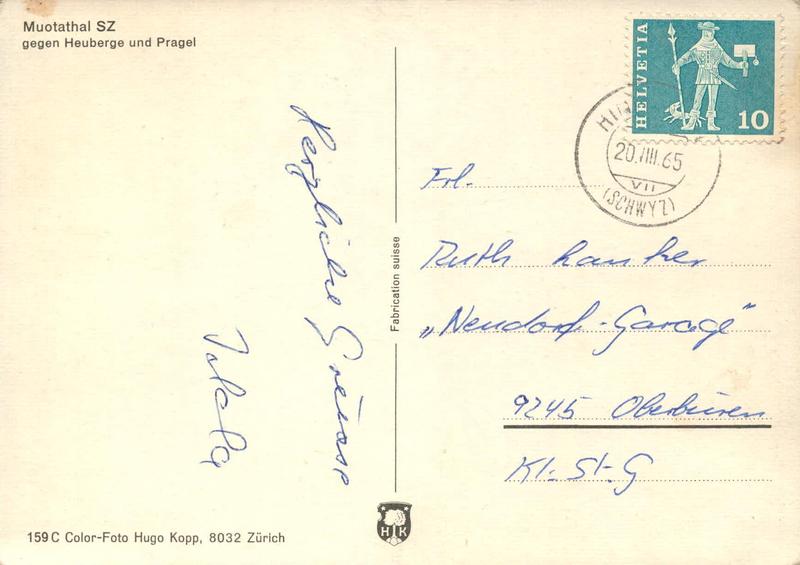 Muotathal SZ
gegen Heuberge und Pragel
HELVETIA
10
20.VIII.65
VII
(SCHWYZ)
Herzliche Grüsse
Frl.
Ruth
„Neudorf-Garage"
9245 Oberbüren
Kt. St. G
Fabrication suisse
159 C Color-Foto Hugo Kopp, 8032 Zürich
H K